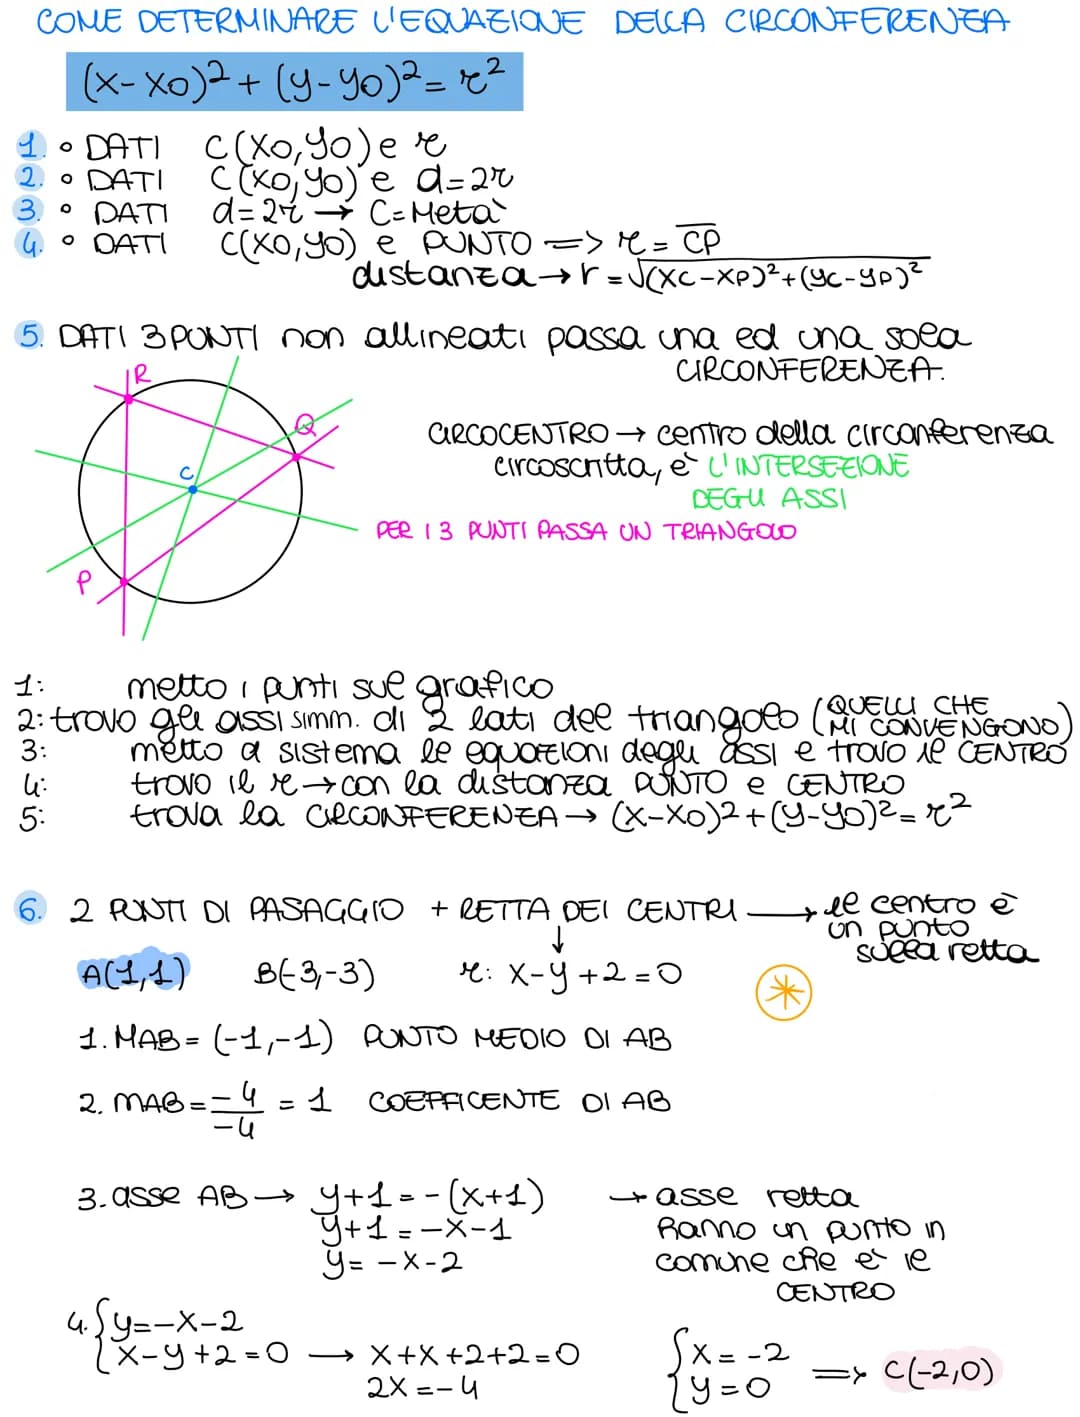 COME DETERMINARE L'EQUAZIONE DELLA CIRCONFERENZA
(x-x0)²+(y-y0)²=r²
1. • DATI C(x0,y0) e r
2. • DATI C(x0,y0) e d=2r
3. • DATI d=2r → C=Metà
4. • DATI C(x0,y0) e PUNTO => r = CP
distanza → r = √(xC-xP)²+(yC-yP)²
5. DATI 3 PUNTI non allineati passa una ed una sola
CIRCONFERENZA.
R
Q
C
P
CIRCOCENTRO → centro della circonferenza
circoscritta, è L'INTERSEZIONE
DEGLI ASSI
PER I 3 PUNTI PASSA UN TRIANGOLO
1: metto i punti sul grafico
2: trovo gli assi simm. di 2 lati del triangolo (QUELLI CHE
MI CONVENGONO)
3: metto a sistema le equazioni degli assi e trovo il CENTRO
4: trovo il r → con la distanza PUNTO e CENTRO
5: trova la CIRCONFERENZA → (x-x0)²+(y-y0)²=r²
6. 2 PUNTI DI PASAGGIO + RETTA DEI CENTRI → il centro è
un punto
sulla retta
↓
A(1,1) B(-3,-3) r: x-y+2=0
1. MAB = (-1,-1) PUNTO MEDIO DI AB
2. mAB = -4/-4 = 1 COEFFICENTE DI AB
3. asse AB → y+1 = -(x+1) → asse retta
y+1 = -x-1 hanno un punto in
y = -x-2 comune che è il
CENTRO
4. { y=-x-2
x-y+2=0 → x+x+2+2=0 { x = -2
2x = -4 y = 0 => C(-2,0)